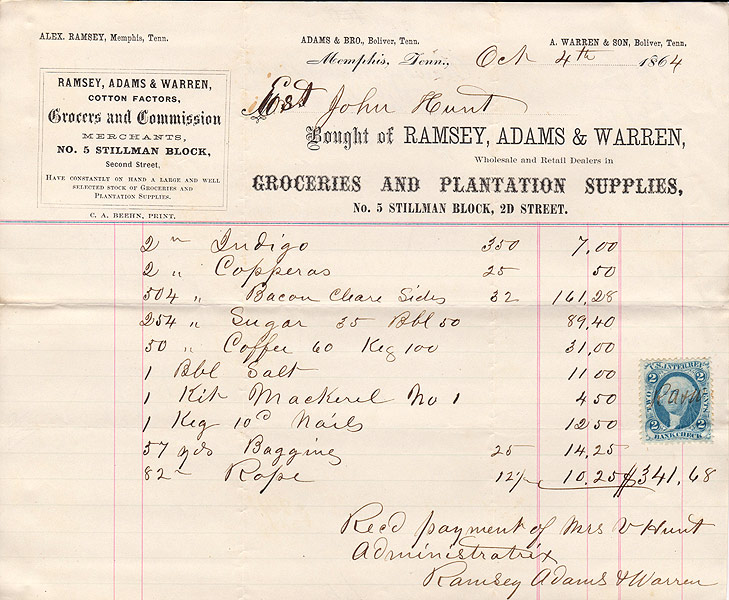 ALEX. RAMSEY, Memphis, Tenn.
ADAMS & BRO., Boliver, Tenn.
A. WARREN & SON, Boliver, Tenn.
Memphis, Tenn., Oct 4th 1864
RAMSEY, ADAMS & WARREN,
COTTON FACTORS,
Grocers and Commission
MERCHANTS,
NO. 5 STILLMAN BLOCK,
Second Street,
HAVE CONSTANTLY ON HAND A LARGE AND WELL
SELECTED STOCK OF GROCERIES AND
PLANTATION SUPPLIES.
C. A. BEEHN, PRINT.
Est John Hunt
Bought of RAMSEY, ADAMS & WARREN,
Wholesale and Retail Dealers in
GROCERIES AND PLANTATION SUPPLIES,
No. 5 STILLMAN BLOCK, 2D STREET.
2 " Indigo 350 7,00
2 " Copperas 25 50
504 " Bacon Clare Sides 32 161,28
254 " Sugar 35 Bbl 50 89,40
50 " Coffee 60 Keg 100 31,00
1 Bbl Salt 11 00
1 Kit Mackerel No 1 4 50
1 Keg 10d Nails 12 50
57 yds Bagging 25 14,25
82 " Rope 12½ 10,25 $341,68
U.S. INTER. REV.
2 2
TWO CENTS
2 2
BANK CHECK
Recd payment of Mrs V Hunt
Administratrix
Ramsey Adams & Warren